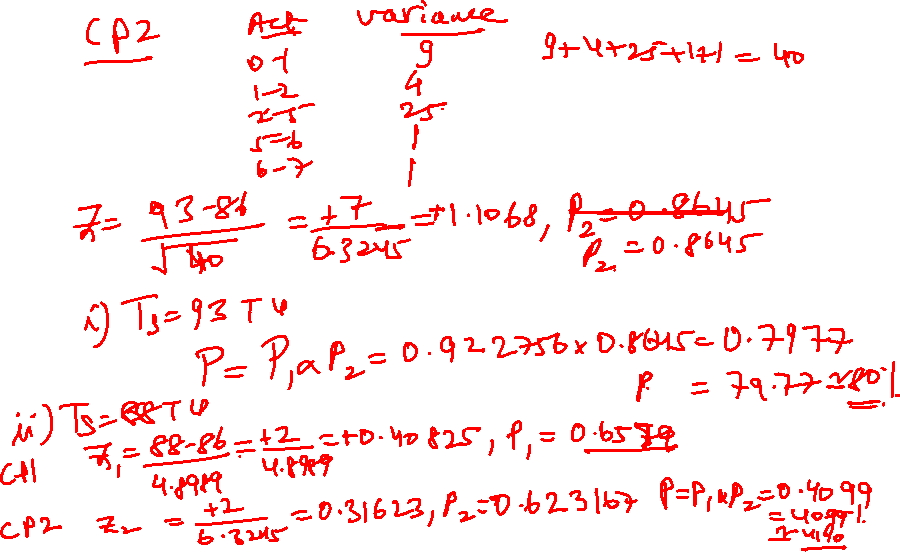 CP2 Act variance
0-1 9 9+4+25+1+1 = 40
1-2 4
2-5 25
5-6 1
6-7 1
Z = 93-86 / √40 = +7 / 6.3245 = +1.1068, P2 = 0.8645
P2 = 0.8645
i) Ts = 93 TU
P = P1 x P2 = 0.922756 x 0.8645 = 0.7977
P = 79.77 ≈ 80%
ii) Ts = 88 TU
CP1 Z1 = 88-86 / 4.8989 = +2 / 4.8989 = +0.40825, P1 = 0.6579
CP2 Z2 = +2 / 6.3245 = 0.31623, P2 = 0.623167 P = P1 x P2 = 0.4099
= 40.99%
≈ 41%